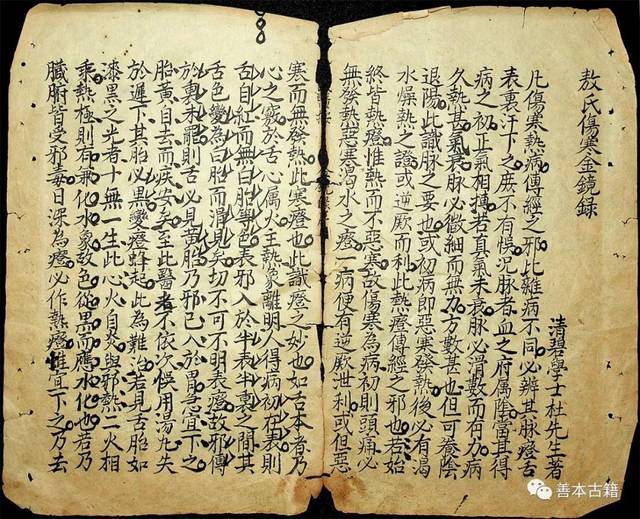 敖氏傷寒金鏡録
清碧學士杜先生著
凡傷寒熱病傳經之邪比雜病不同必辨其脉證舌
表裏汗下之庶不有悮况脉者血之府属陰當其得
病之初正氣相搏若真氣未衰脉必滑數而有力病
久熱甚氣衰脉必微細而無力方數甚也但可養陰
退陽此識脉之要也或初病即惡寒發熱後必有渴
水燥熱之證或逆厥而利此熱證傳經之邪也若始
終皆熱證惟熱而不惡寒故傷寒為病初則頭痛必
無發熱惡寒渴水之證一病便有逆厥泄利或但惡
寒而無發熱此寒證也此識證之妙也如舌本者乃
心之竅於舌心属火主熱象離明人得病初在表則
舌自紅而無白胎等色表邪入於半表半裏之間其
舌色變為白胎而滑見矣切不可不明表證故邪傳
於裏未罷則舌必見黄胎乃邪已入於胃急宜下之
胎黄自去而疾安矣至此醫者不依次悮用湯丸失
於遲下其胎必黒變證蜂起此為難治若見舌胎如
漆黒之光者十無一生此心火自炎與邪熱二火相
乘熱極則有兼化水象故色從黒而應水化也若乃
臓腑皆受邪毒日深為證必作熱證惟宜下之乃去
善本古籍